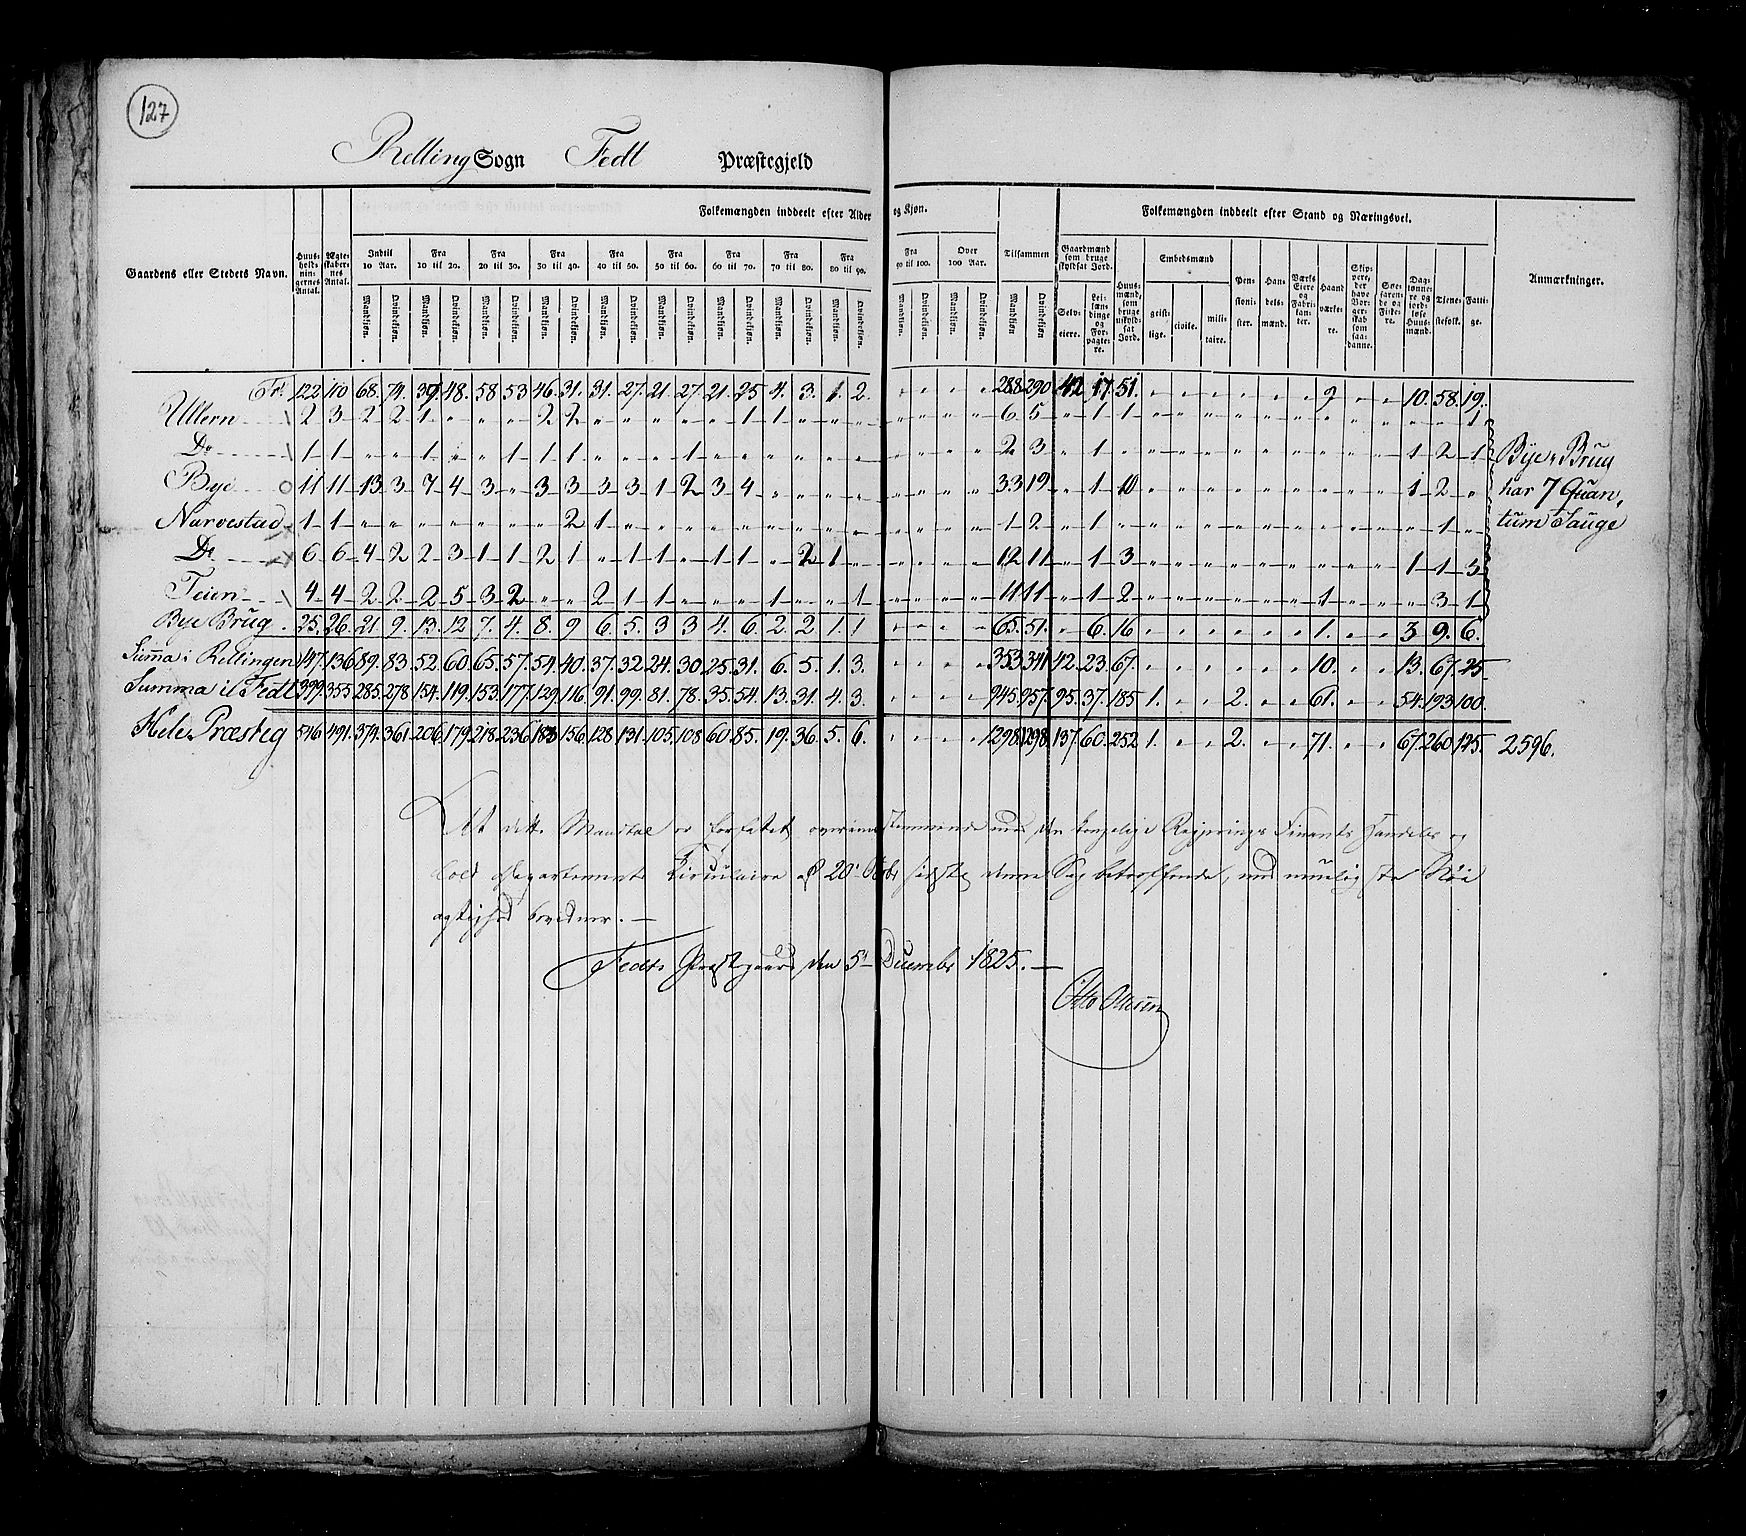 127
Relling Sogn Fedt Præstegjeld
Folkemængden inddeelt efter Alder og Kjøn. Folkemængden inddeelt efter Stand og Næringsvei.
Gaardens eller Stedets Navn. Huus-holdningernes Antal. Ægteskabernes Antal. Indtil 10 Aar. Fra 10 til 20. Fra 20 til 30. Fra 30 til 40. Fra 40 til 50. Fra 50 til 60. Fra 60 til 70. Fra 70 til 80. Fra 80 til 90. Fra 90 til 100. Over 100 Aar. Tilsammen Gaardmænd som bruge skyldsat Jord. Huusmænd, som bruge uskyldsat Jord. Embedsmænd Pensionister. Handelsmænd. Værks Eiere og Fabrikanter. Haandværkere. Skippere, der have Borgerskab som saadanne. Søefarende og Fiskere. Daglønnere og jordløse Huusmænd. Tjenestefolk. Fattige. Anmærkninger.
Mandkjøn. Qvindekjøn. Mandkjøn. Qvindekjøn. Mandkjøn. Qvindekjøn. Mandkjøn. Qvindekjøn. Mandkjøn. Qvindekjøn. Mandkjøn. Qvindekjøn. Mandkjøn. Qvindekjøn. Mandkjøn. Qvindekjøn. Mandkjøn. Qvindekjøn. Mandkjøn. Qvindekjøn. Mandkjøn. Qvindekjøn. Mandkjøn. Qvindekjøn. Selveiere. Leilændinge og Forpagtere. geistlige. civile. militaire.
Tr. 122 110 68. 74. 39. 48. 58 53 46. 31. 31. 27. 21. 27. 21. 25 4. 3. 1. 2. " " " " 288 290 42 17. 51. " " " " " " 9 " " 10. 58. 19.
Ullern 1 2 3 2 2 1 " " " 2 2 " " " " " 1 1 " " " " " " " 6 5 " 1 1 " " " " " " " " " " " 1
Do 1 1 1 " " 1 " " 1 1 1 " " " 1 " " " " " " " " " " 2 3 " 1 " " " " " " " " " " 1 2 1 Bye Brug
Bye 0 11 11 13 3 7 4 3 " 3 3 3 3 1 2 3 4 " " " " " " " " 33 19 " 1 10 " " " " " " " " " 1 2 " har 7 Quan-
Narvestad x 1 1 " " " " " " " 2 1 " " " " " " " " " " " " " 1 2 " 1 " " " " " " " " " " " 1 " tum Sauge
Do x 6 6 4 2 2 3 1 1 2 1 " 1 1 " 1 1 " 2 1 " " " " " 12 11 " 1 3 " " " " " " " " " 1 1 3
Teien 1 4 4 2 2 2 5 3 2 " " 2 1 1 " " " 1 " " 1 " " " " 11 11 " 1 2 " " " " " " 1 " " " 3 1
Bye Brug. 25. 26. 21 9. 13. 12 7. 4. 8. 9 6. 5. 3 3 4. 6 2. 2 1. 1 " " " " 65. 51. " 6. 16 " " " " " " 1. " " 3 9. 6.
Summa i Rellingen 147. 136 89. 83. 52. 60. 65. 57. 54. 40. 37. 32 24. 30 25. 31. 6. 5. 1. 3. " " " " 353 341 42. 23. 67. " " " " " " 10. " " 13. 67. 25
Summa il Fedt 399. 355 285. 278 154. 119. 153. 177. 129. 116. 91. 99. 81. 78. 35. 54. 13. 31. 4. 3. " " " " 945. 957. 95. 37. 185 1. " " 2. " " 61. " " 54. 193 100.
Hele Præsteg 546 491. 374. 361. 206 179. 218. 236 183 156. 128 131. 105. 108 60. 85. 19. 36. 5. 6. " " " " 1298 1298 137. 60. 252 1. " " 2. " " 71. " " 67. 260 125. 2596.
At dette Mandtal er forfattet overeensstemmende med den kongelige Regjerings Finants Handels og
Told Departements Circulaire af 20' Octbr sidstl denne Sag betreffende, med muligste Nøi
agtighed bevidner. —
Fedts Præstegaard den 5' December 1825. —
Otto Ottesen